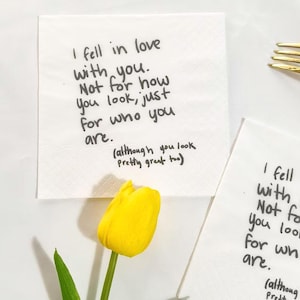 I fell in love
with you.
Not for how
you look, just
for who you
are.
(although you look
pretty great too)
I fell
with
Not fo
you loo
for wh
are.
(althoug
pretty